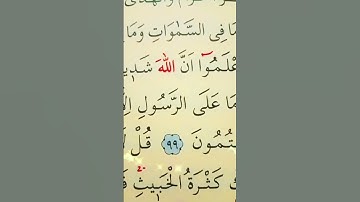 مَا فِى السَّمٰوَاتِ وَمَا
عْلَمُٓوا اَنَّ اللّٰهَ شَدٖي
مَا عَلَى الرَّسُولِ اِلَّا
تُمُونَ ﴿٩٩﴾ قُلْ لَا
كَ كَثْرَةُ الْخَبٖيثِ فَ